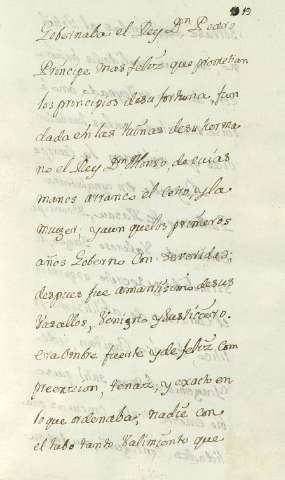 19
Gobernaba el Rey Dn Pedro
Principe mas feliz que prometian
los principios de su fortuna, fun
dada en las ruinas de su herma
no el Rey Dn Alonso, de cuias
manos arranco el cetro, y la
muger; y aun que los primeros
años Goberno con severidad;
despues fue amantisimo de sus
Vasallos, Venigno y Justiciero.
era ombre fuerte y de feliz com
prension, tenaz, y exacto en
lo que ordenaba; nadie con
el tubo tanto Valimiento que